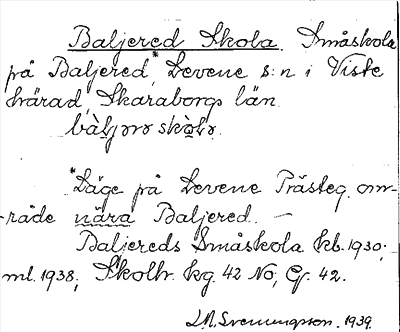 Baljered Skola. Småskola
på Baljered,* Levene s:n i Viste
härad, Skaraborgs län.
*Läge på Levene Prästeg. om-
råde nära Baljered. —
Baljereds Småskola kb. 1930;
ml. 1938; Skolhr. kg. 42 NO, Gf. 42.
1939